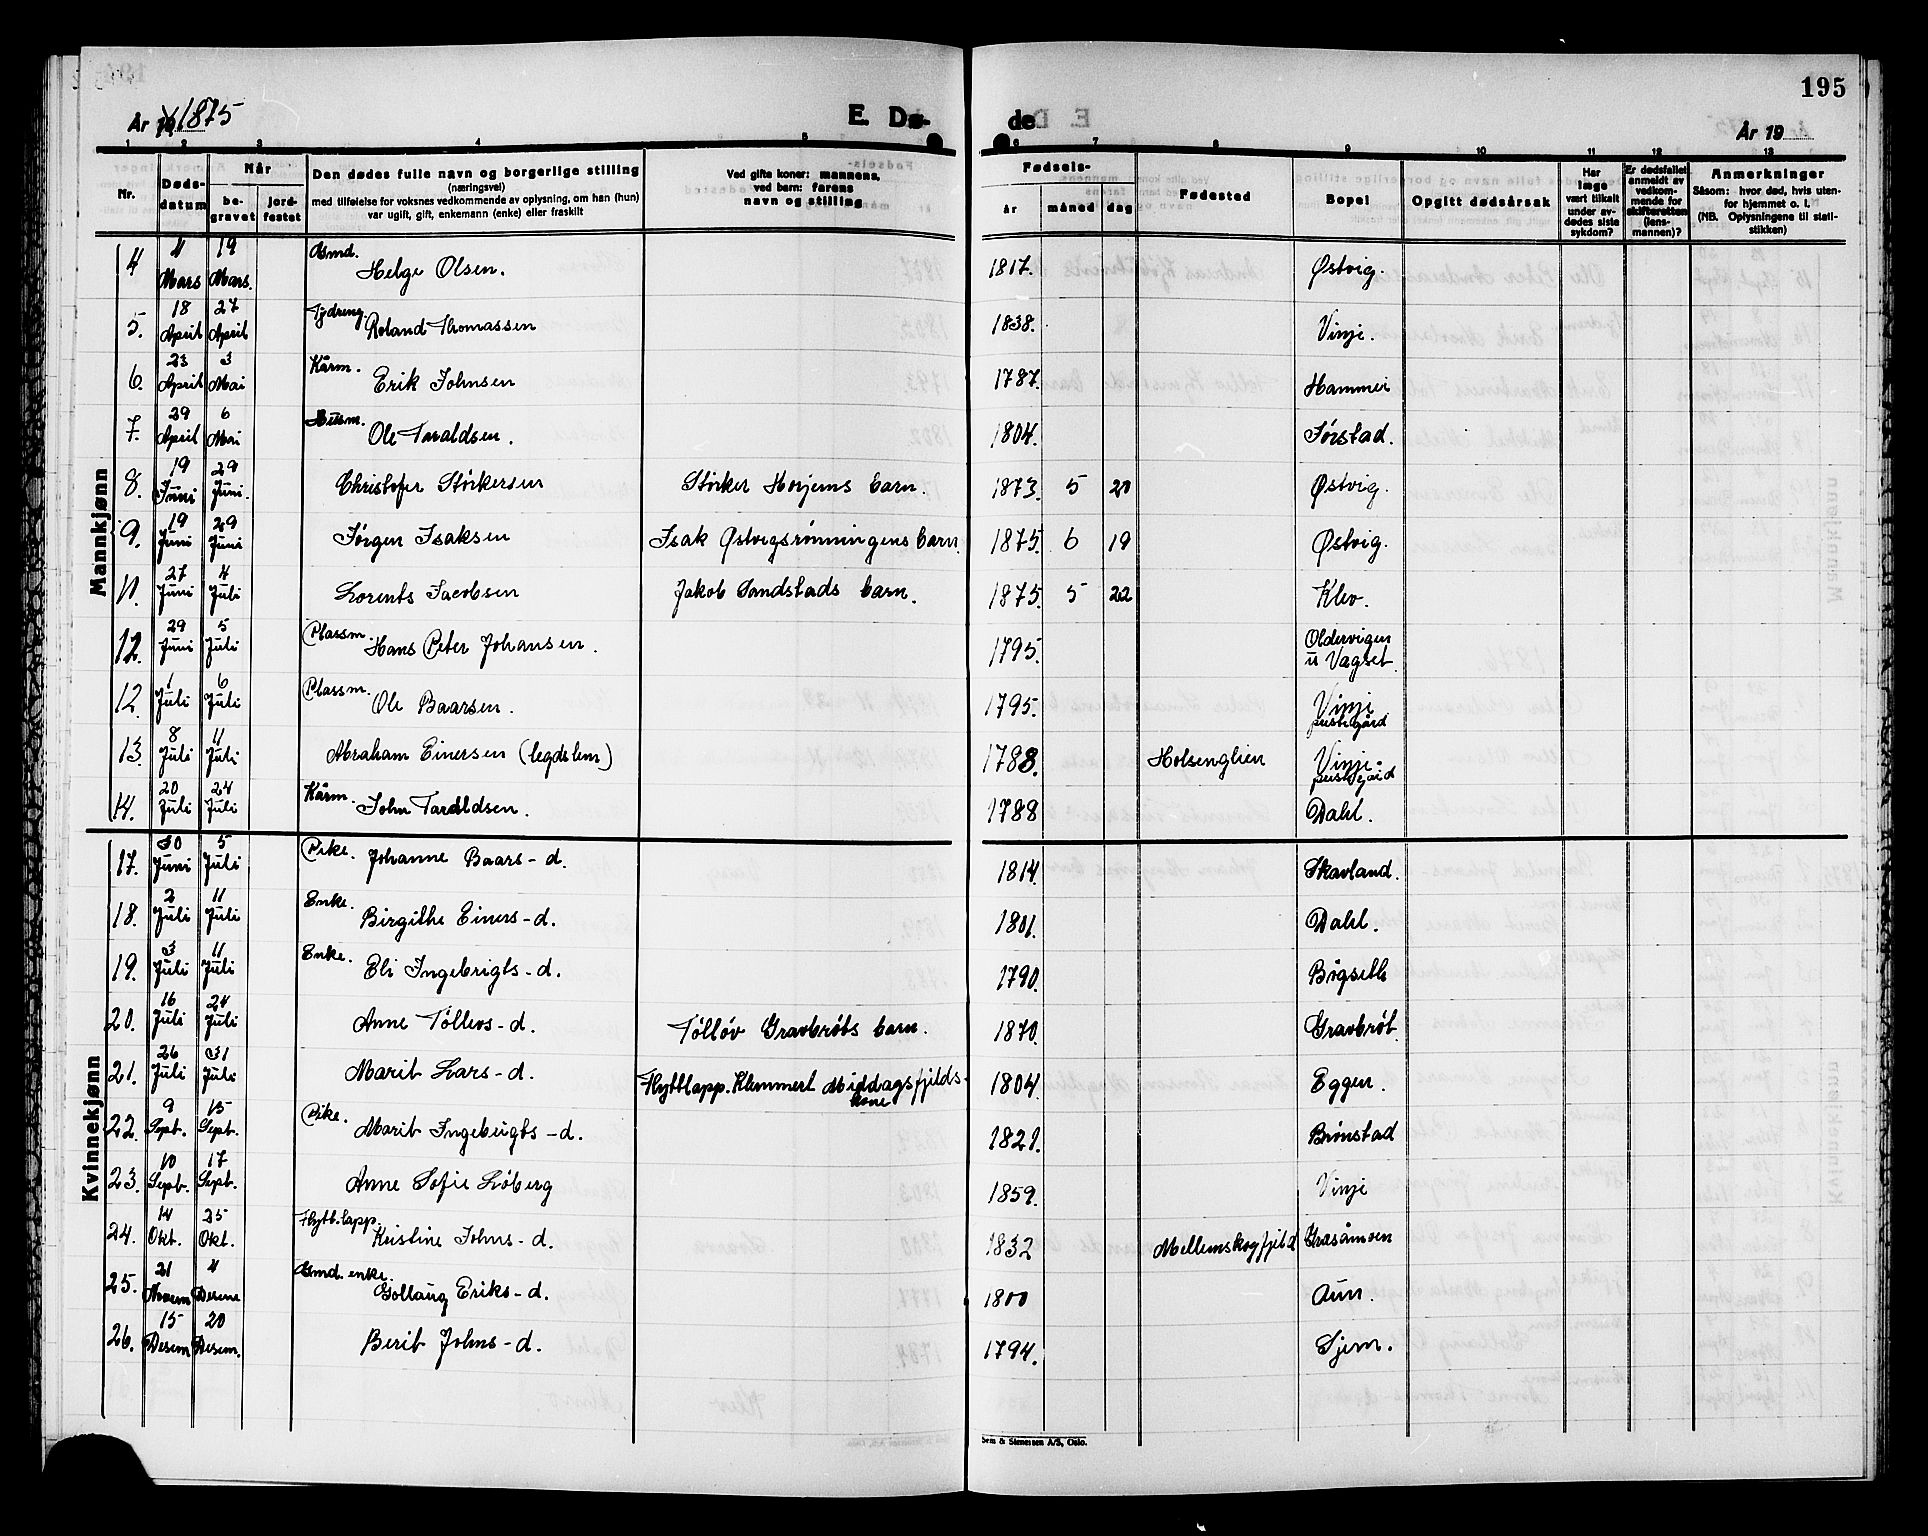 195
År 1875
E. Dø-
de
År 19
1 2 3 4 5 6 7 8 9 10 11 12 13
Nr.
Døds-
datum
Når
be-
gravet
jord-
festet
Den dødes fulle navn og borgerlige stilling
(næringsvei)
med tilføielse for voksnes vedkommende av oplysning, om han (hun)
var ugift, gift, enkemann (enke) eller fraskilt
Ved gifte koner: mannens,
ved barn: farens
navn og stilling
Fødsels-
år
måned
dag
Fødested
Bopel
Opgitt dødsårsak
Har
læge
vært tilkalt
under av-
dødes siste
sykdom?
Er dødsfallet
anmeldt av
vedkom-
mende for
skifteretten
(lens-
mannen)?
Anmerkninger
Såsom: hvor død, hvis uten-
for hjemmet o. l.
(NB. Oplysningene til stati-
stikken)
Mannkjønn
4 11 Mars 19 Mars. Gmd. Helge Olsen. 1817. Østvig.
5. 18 April 27 April Tjdreng. Roland Thomassen 1838. Vinje.
6. 23 April 3 Mai Kårm. Erik Johnsen 1787. Hammer
7. 29 April 6 Mai Husm. Ole Taraldsen. 1804. Førstad.
8. 19 Juni 29 Juni. Christofer Störkersen Störker Horjems barn. 1873. 5 20 Østvig.
9. 19 Juni 29 Juni Jörgen Isaksen Isak Østvigsrønningens barn. 1875. 6 19 Østvig.
10. 27 Juni 4 Juli Lorents Jacobsen Jakob Sandstads barn. 1875. 5 22 Klev.
12. 29 Juni 5 Juli Plassm. Hans Peter Johansen. 1795. Oldervigen
u Vagset.
12. 1 Juli 6 Juli Plassm. Ole Baarsen. 1795. Vinje
prestegård
13. 8 Juli 11 Juli Abraham Einersen (legdslem) 1788. Holsenglien Vinje
prestegård
14. 20 Juli 24 Juli Kårm. John Taraldsen. 1788 Dahl.
Kvinnekjønn
17. 30 Juni 5 Juli Pike. Johanne Baars-d. 1814. Skavland.
18. 2 Juli 11 Juli Enke. Birgithe Einers-d. 1801. Dahl.
19. 3 Juli 11 Juli Enke. Eli Ingebrigts-d. 1790. Bögseth
20. 16 Juli 24 Juli Anne Töllevs-d. Töllöv Gravbröts barn. 1870. Gravbröt.
21. 26 Juli 31 Juli Marit Lars-d. Flyttlapp. Klemmert Middagsfjelds-
kone 1804. Eggen.
22. 9 Sept. 15 Sept. Pike. Marit Ingebrigts-d. 1821. Brönstad
23. 10 Sept. 17 Sept. Anne Sofie Löberg 1859. Vinje
24. 14 Okt. 25 Okt. Flytt.lapp. Kristine Johns-d. 1832 Mellemskogfjeld Grasåmoen
25. 21 Novem 4 Desem Gmd. enke. Gollaug Eriks-d. 1800 Aun.
26. 15 Desem 20 Desem. Berit Johns-d. 1794. Gjem.
Sem & Stenersen A/S, Oslo.